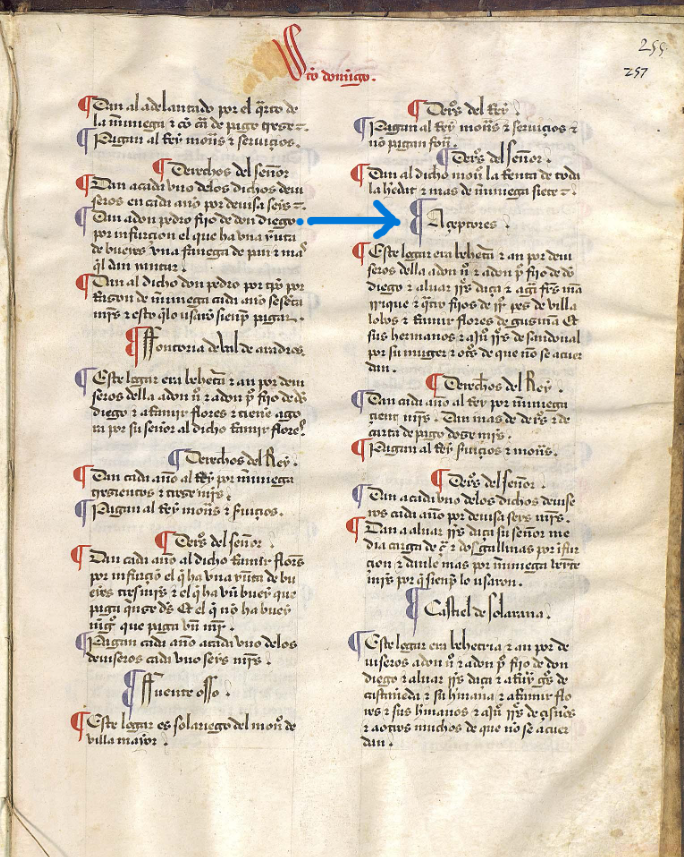 255
257
Sto domingo.
Dan al adelantado por el qrto de
la mmiega & co cā de pago trese mrs.
Pagan al Rey mons & seruicios.
Derechos del señor
Dan acada vno delos dichos deui
seros en cada año por deuisa seis mrs.
Dan adon pedro fijo de don diego
por infurcion el que ha vna yunta
de bueyes vna fanega de pan & mas
ql dan yantar.
Dan al dicho don pedro por
Razon de mmiega cada año
mrs & esto qlo usaro sienp pagar.
Ffontoria de val de aradres
Este logar era behetria & an por deui
seros della adon nº & adon pº fijo de dō
diego & aRamir flores & tiene agō
ra por su señor al dicho Ramir flores
Derechos del Rey.
Dan cada año al Rey por mmiega
tresientos & trese mrs.
Pagan al Rey mons & suicios.
Deros del señor.
Dan cada año al dicho Ramir flores
por infurcio el q ha vna yunta de bu
eyes tres mrs & el q ha vn buey que
pague quise ds Et el q no ha buey
que pague vn mr.
Pagan cada año acada vno delos
deuiseros cada vno seys mrs.
Ffuente osso.
Este logar es solariego del mon de
villa mayor.
Deros del Rey.
Pagan al Rey mons & seruicios &
no pagan fon.
Deros del señor.
Dan al dicho mon la renta de toda
la hedat & mas de mmiega siete mrs
Açeptores.
Este logar era behetria & an por deui
seros della adon nº & adon pº fijo de dō
diego & aluar rrs daça & agō frs ma
rrique & qtro fijos de rrº pes de villa
lobos & Ramir flores de gusman Et
sus hermanos & aJuº rrs de sandoual
por su muger & otros de que no se acuer
dan.
Derechos del Rey.
Dan cada año al Rey por mmiega
çient mrs. Dan mas de deros & de
carta de pago dose mrs.
Pagan al Rey suicios & mons.
Deros del señor.
Dan acada vno delos dichos deuise
ros cada año por deuisa seys mrs.
Dan a aluar rrs daça su señor me
dia carga de & dos gallinas por ifur
çion & danle mas por mmiega
mrs por q sienp lo usaron.
Castiel de solarana.
Este logar era behetria & an por de
uiseros adon nº & adon pº fijo de don
diego & aluar rrs daça & aRuy gs de
castañeda & su hmana & aRamir flo
res & sus hmanos & aJuº rrs de çisnos
& aotros muchos de que no se acuer
dan.